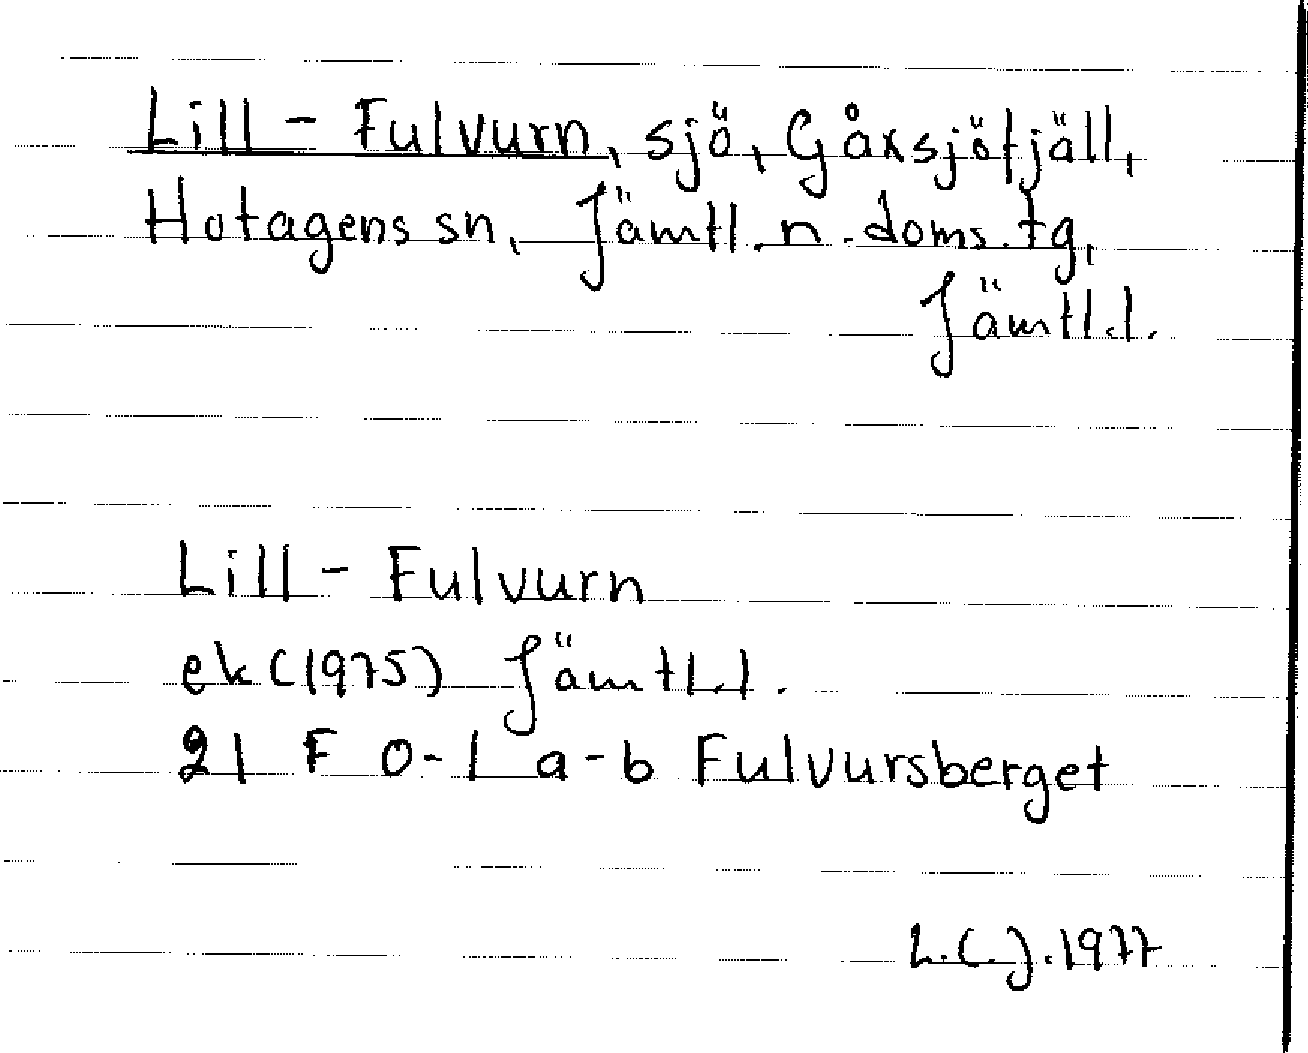 Lill-Fulvurn, sjö, Gåxsjöfjäll,
Hotagens sn, Jämtl. n. doms. tg,
Jämtl.l.
Lill-Fulvurn
ek (1975) Jämtl.l.
21 F 0-1 a-b Fulvursberget
L.C.J. 1977